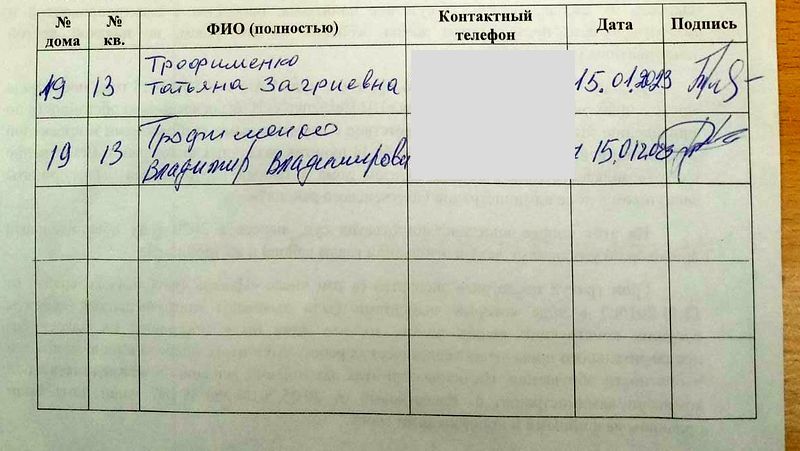 № дома № кв. ФИО (полностью) Контактный телефон Дата Подпись
19 13 Трофименко
Татьяна Загриевна 15.01.2023
19 13 Трофименко
Владимир Владимирови 15.01.2023